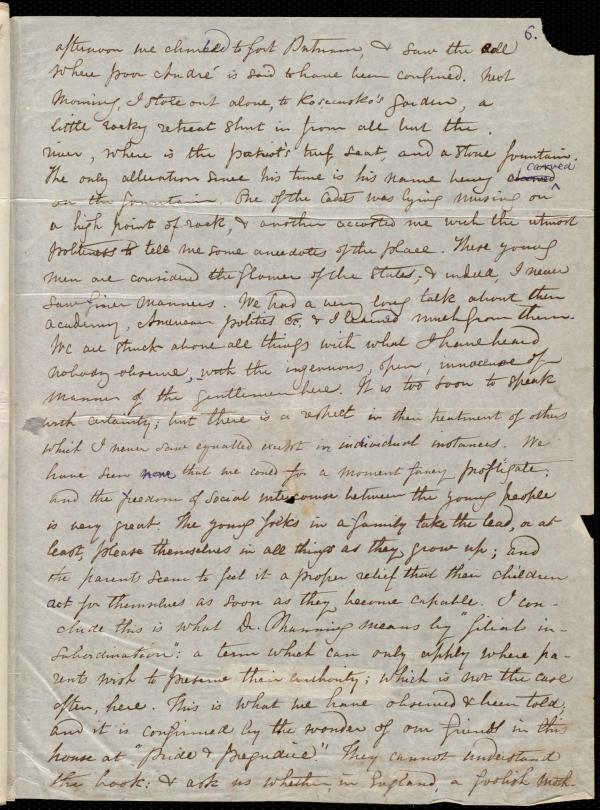 6.
afternoon we climbed to Fort Putnam, & saw the cell
where poor André is said to have been confined. Next
Morning, I stole out alone, to Kosciusko's Garden, a
little rocky retreat shut in from all but the
river, where is the patriot's turf seat, and a stone fountain.
The only alteration since his time is his name being carved
on the fountain. One of the Cadets was lying musing on
a high point of rock, & another accosted me with the utmost
politeness to tell me some anecdotes of the place. These young
men are considered the flower of the States, & indeed, I never
saw finer manners. We had a very long talk about their
academy, American politics &c, & I learned much from them.
We are struck above all things with what I have heard
nobody observe, with the ingenuous, open, innocence of
manner of the gentlemen here. It is too soon to speak
with certainty; but there is a respect in their treatment of others
which I never saw equalled except in individual instances. We
have seen none that we could for a moment fancy profligate;
and the freedom of social intercourse between the young people
is very great. The young folks in a family take the lead, or at
least, please themselves in all things as they grow up; and
the parents seem to feel it a proper relief that their children
act for themselves as soon as they become capable. I con-
clude this is what Dr. Manning means by "filial in-
subordination": a term which can only apply where pa-
rents wish to preserve their authority; which is not the case
often, here. This is what we have observed & been told;
and it is confirmed by the wonder of our friends in this
house at "Pride & Prejudice." They cannot understand
the book: & ask us whether, in England, a foolish moth-